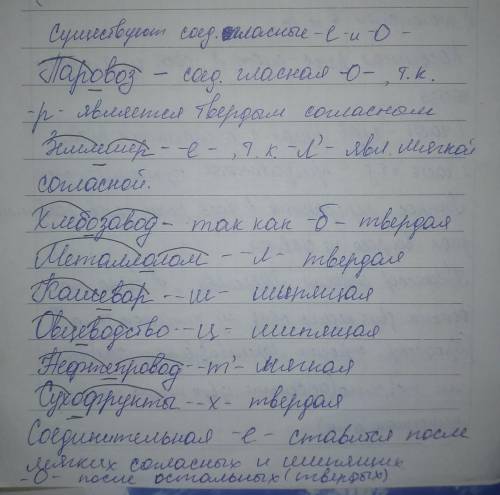 Существуют соед. гласные -е- и -О-
Паровоз - соед. гласная -О-, т.к.
-р- является твердым согласным
Землемер - -е-, т.к. -л'- явл. мягкой
согласной.
Хлебозавод - так как -б- твердая
Металлолом - -л- твердая
Кашевар - -ш- шипящая
Овцеводство - -ц- шипящая
Нефтепровод - -т'- мягкая
Сухофрукты - -х- твердая
Соединительная -е- ставится после
мягких согласных и шипящих
-О- после остальных (твердых)